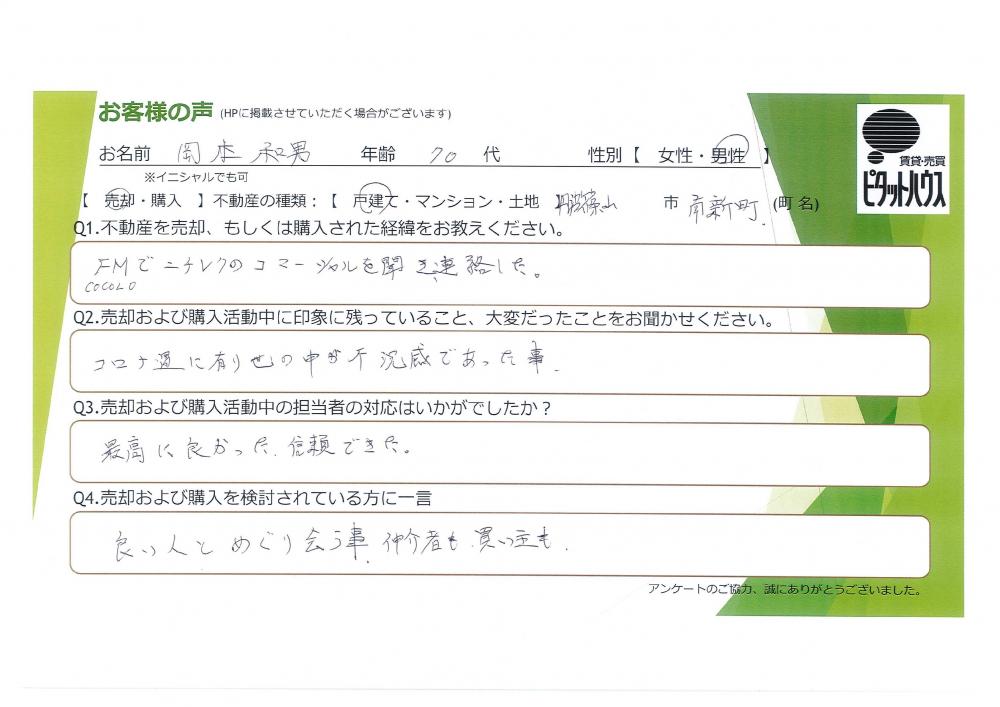 お客様の声 (HPに掲載させていただく場合がございます)
お名前 岡本 和男 年齢 70 代 性別【 女性・男性 】
※イニシャルでも可
【 売却・購入 】不動産の種類:【 戸建て・マンション・土地 】丹波篠山 市 南新町. (町名)
賃貸・売買
ピタットハウス
Q1.不動産を売却、もしくは購入された経緯をお教えください。
FMでニチレクのコマーシャルを聞き連絡した。
COCOLO
Q2.売却および購入活動中に印象に残っていること、大変だったことをお聞かせください。
コロナ過に有り世の中が不況感であった事.
Q3.売却および購入活動中の担当者の対応はいかがでしたか?
最高に良かった.信頼できた。
Q4.売却および購入を検討されている方に一言
良い人とめぐり会う事.仲介者も.買い主も.
アンケートのご協力、誠にありがとうございました。